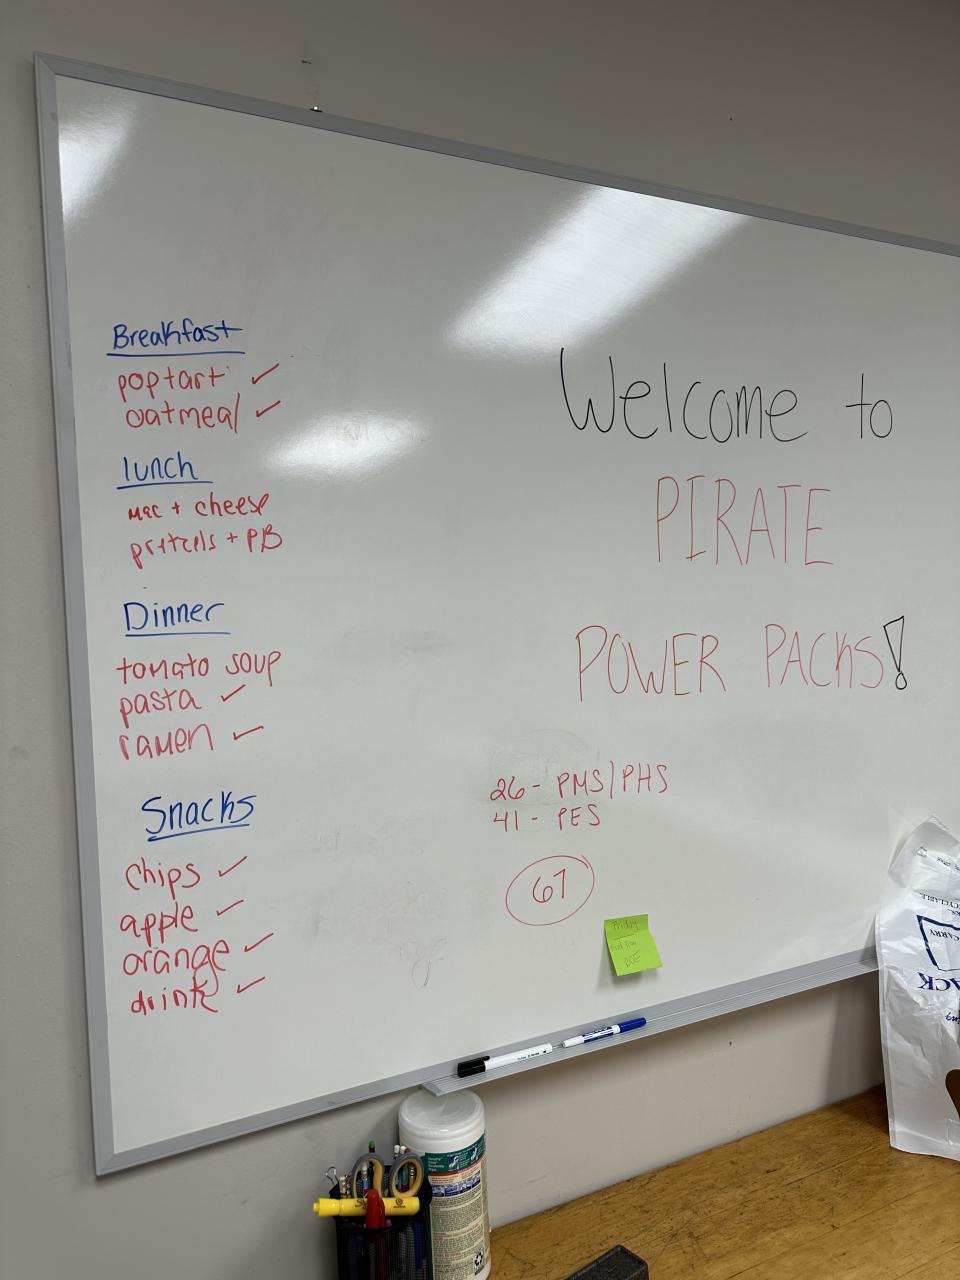 Breakfast
poptart ✓
oatmeal ✓
lunch
mac + cheese
pretzels + PB
Dinner
tomato soup
pasta ✓
ramen ✓
Snacks
chips ✓
apple ✓
orange ✓
drink ✓
Welcome to
PIRATE
POWER PACKS!
26 - PMS/PHS
41 - PES
67
Friday
CARRY